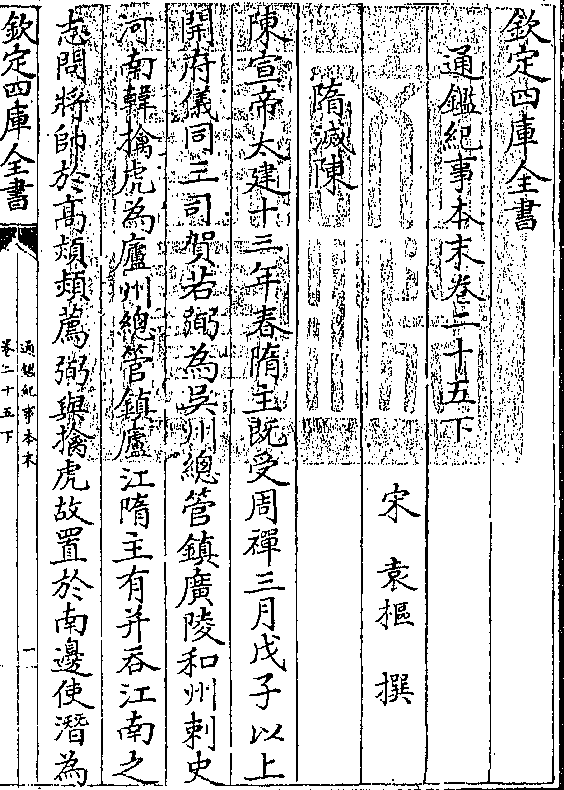 欽定四庫全書
通鑑紀事本末卷二十五下
宋 袁樞 撰
隋滅陳
陳宣帝太建十三年春隋主既受周禪三月戊子以上
開府儀同三司賀若弼為吳州總管鎮廣陵和州刺史
河南韓擒虎為廬州總管鎮廬江隋主有并吞江南之
志問將帥於高熲熲薦弼與擒虎故置於南邊使潛為
欽定四庫全書
通鑑紀事本末
卷二十五下
一